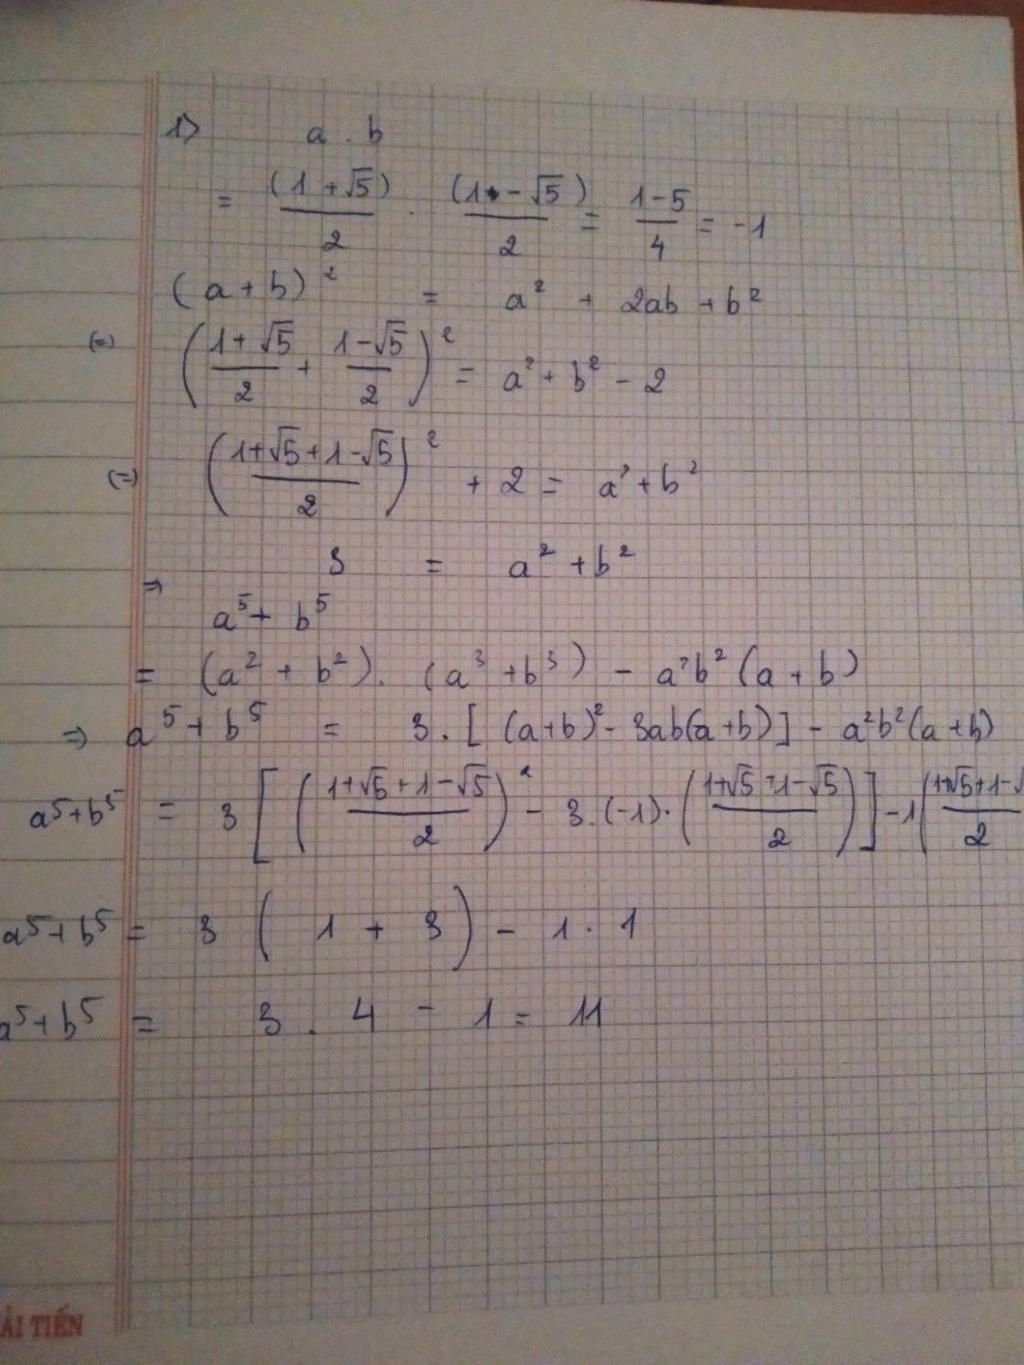 1) a . b
= (1 + √5)/2 . (1 - √5)/2 = (1-5)/4 = -1
(a+b)² = a² + 2ab + b²
(=) ((1+√5)/2 + (1-√5)/2)² = a² + b² - 2
(=) ((1+√5+1-√5)/2)² + 2 = a² + b²
3 = a² + b²
⇒
a⁵ + b⁵
= (a² + b²). (a³ + b³) - a²b² (a + b)
⇒ a⁵ + b⁵ = 3 . [ (a+b)² - 3ab(a+b)] - a²b²(a+b)
a⁵+b⁵ = 3 [ ((1+√5 + 1-√5)/2)² - 3.(-1).((1+√5 + 1-√5)/2) ] -1 ((1+√5+1-√)/2
a⁵+b⁵ = 3 ( 1 + 3 ) - 1 . 1
a⁵+b⁵ = 3 . 4 - 1 = 11
ẢI TIẾN